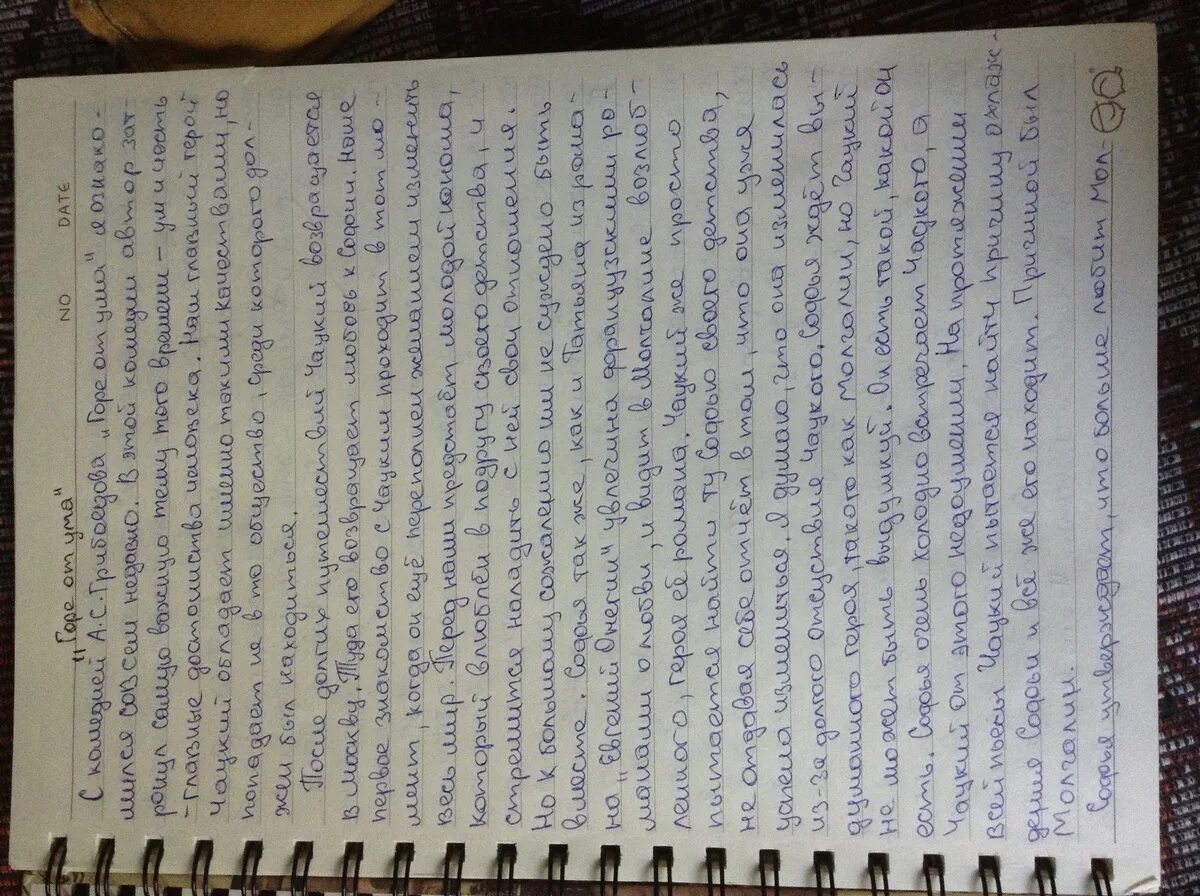 NO DATE
"Горе от ума"
С комедией А.С. Грибоедова „Горе от ума" я ознако-
мился совсем недавно. В этой комедии автор зат-
ронул самую важную тему того времени – ум и честь
- главные достоинства человека. Наш главный герой
Чацкий обладает именно такими качествами, но
попадает не в то общество, среди которого дол-
жен был находиться.
После долгих путешествий Чацкий возвращается
в Москву. Туда его возвращает любовь к Софии. Наше
первое знакомство с Чацким проходит в тот мо-
мент, когда он ещё переполнен желанием изменить
весь мир. Перед нами предстаёт молодой юноша,
который влюблён в подругу своего детства, и
стремится наладить с ней свои отношения.
Но к большому сожалению им не суждено быть
вместе. Софья так же, как и Татьяна из рома-
на „Евгений Онегин" увлечена французскими ро-
манами о любви, и видит в Молчалине возлюб-
леного, героя её романа. Чацкий же просто
пытается найти ту Софью своего детства,
не отдавая себе отчёт в том, что она уже
успела измениться. Я думаю, что она изменилась
из-за долгого отсуствия Чацкого. Софья ждёт вы-
думаного героя, такого как Молчалин, но Чацкий
не может быть выдумкой. Он есть такой, какой он
есть. Софья очень холодно встречает Чадкого, а
Чацкий от этого недоумении. На протяжении
всей пьесы Чацкий пытается найти причину охлаж-
дения Софьи и всё же его находит. Причиной был
Молчалин.
Софья утверждает, что больше любит Мол-